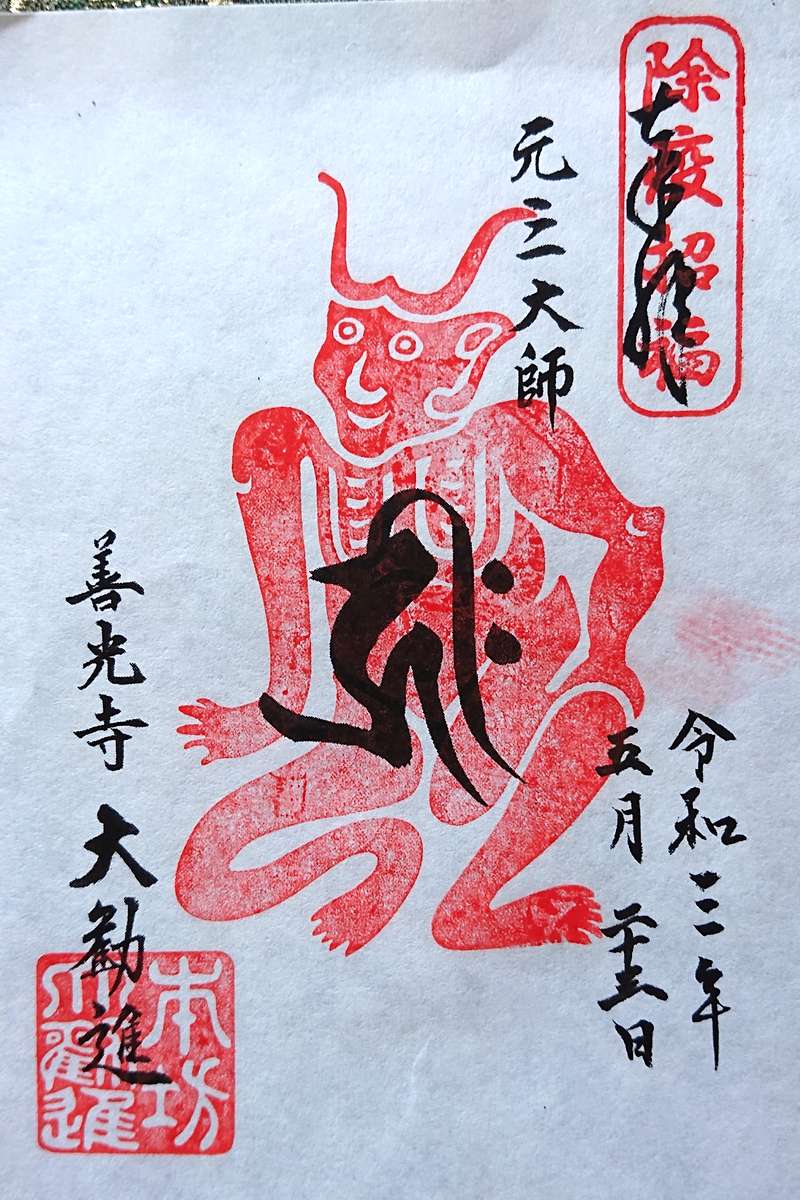 除疫招福
奉拝
元三大師
令和三年
五月二十三日
善光寺 大勧進
本坊
大勸進